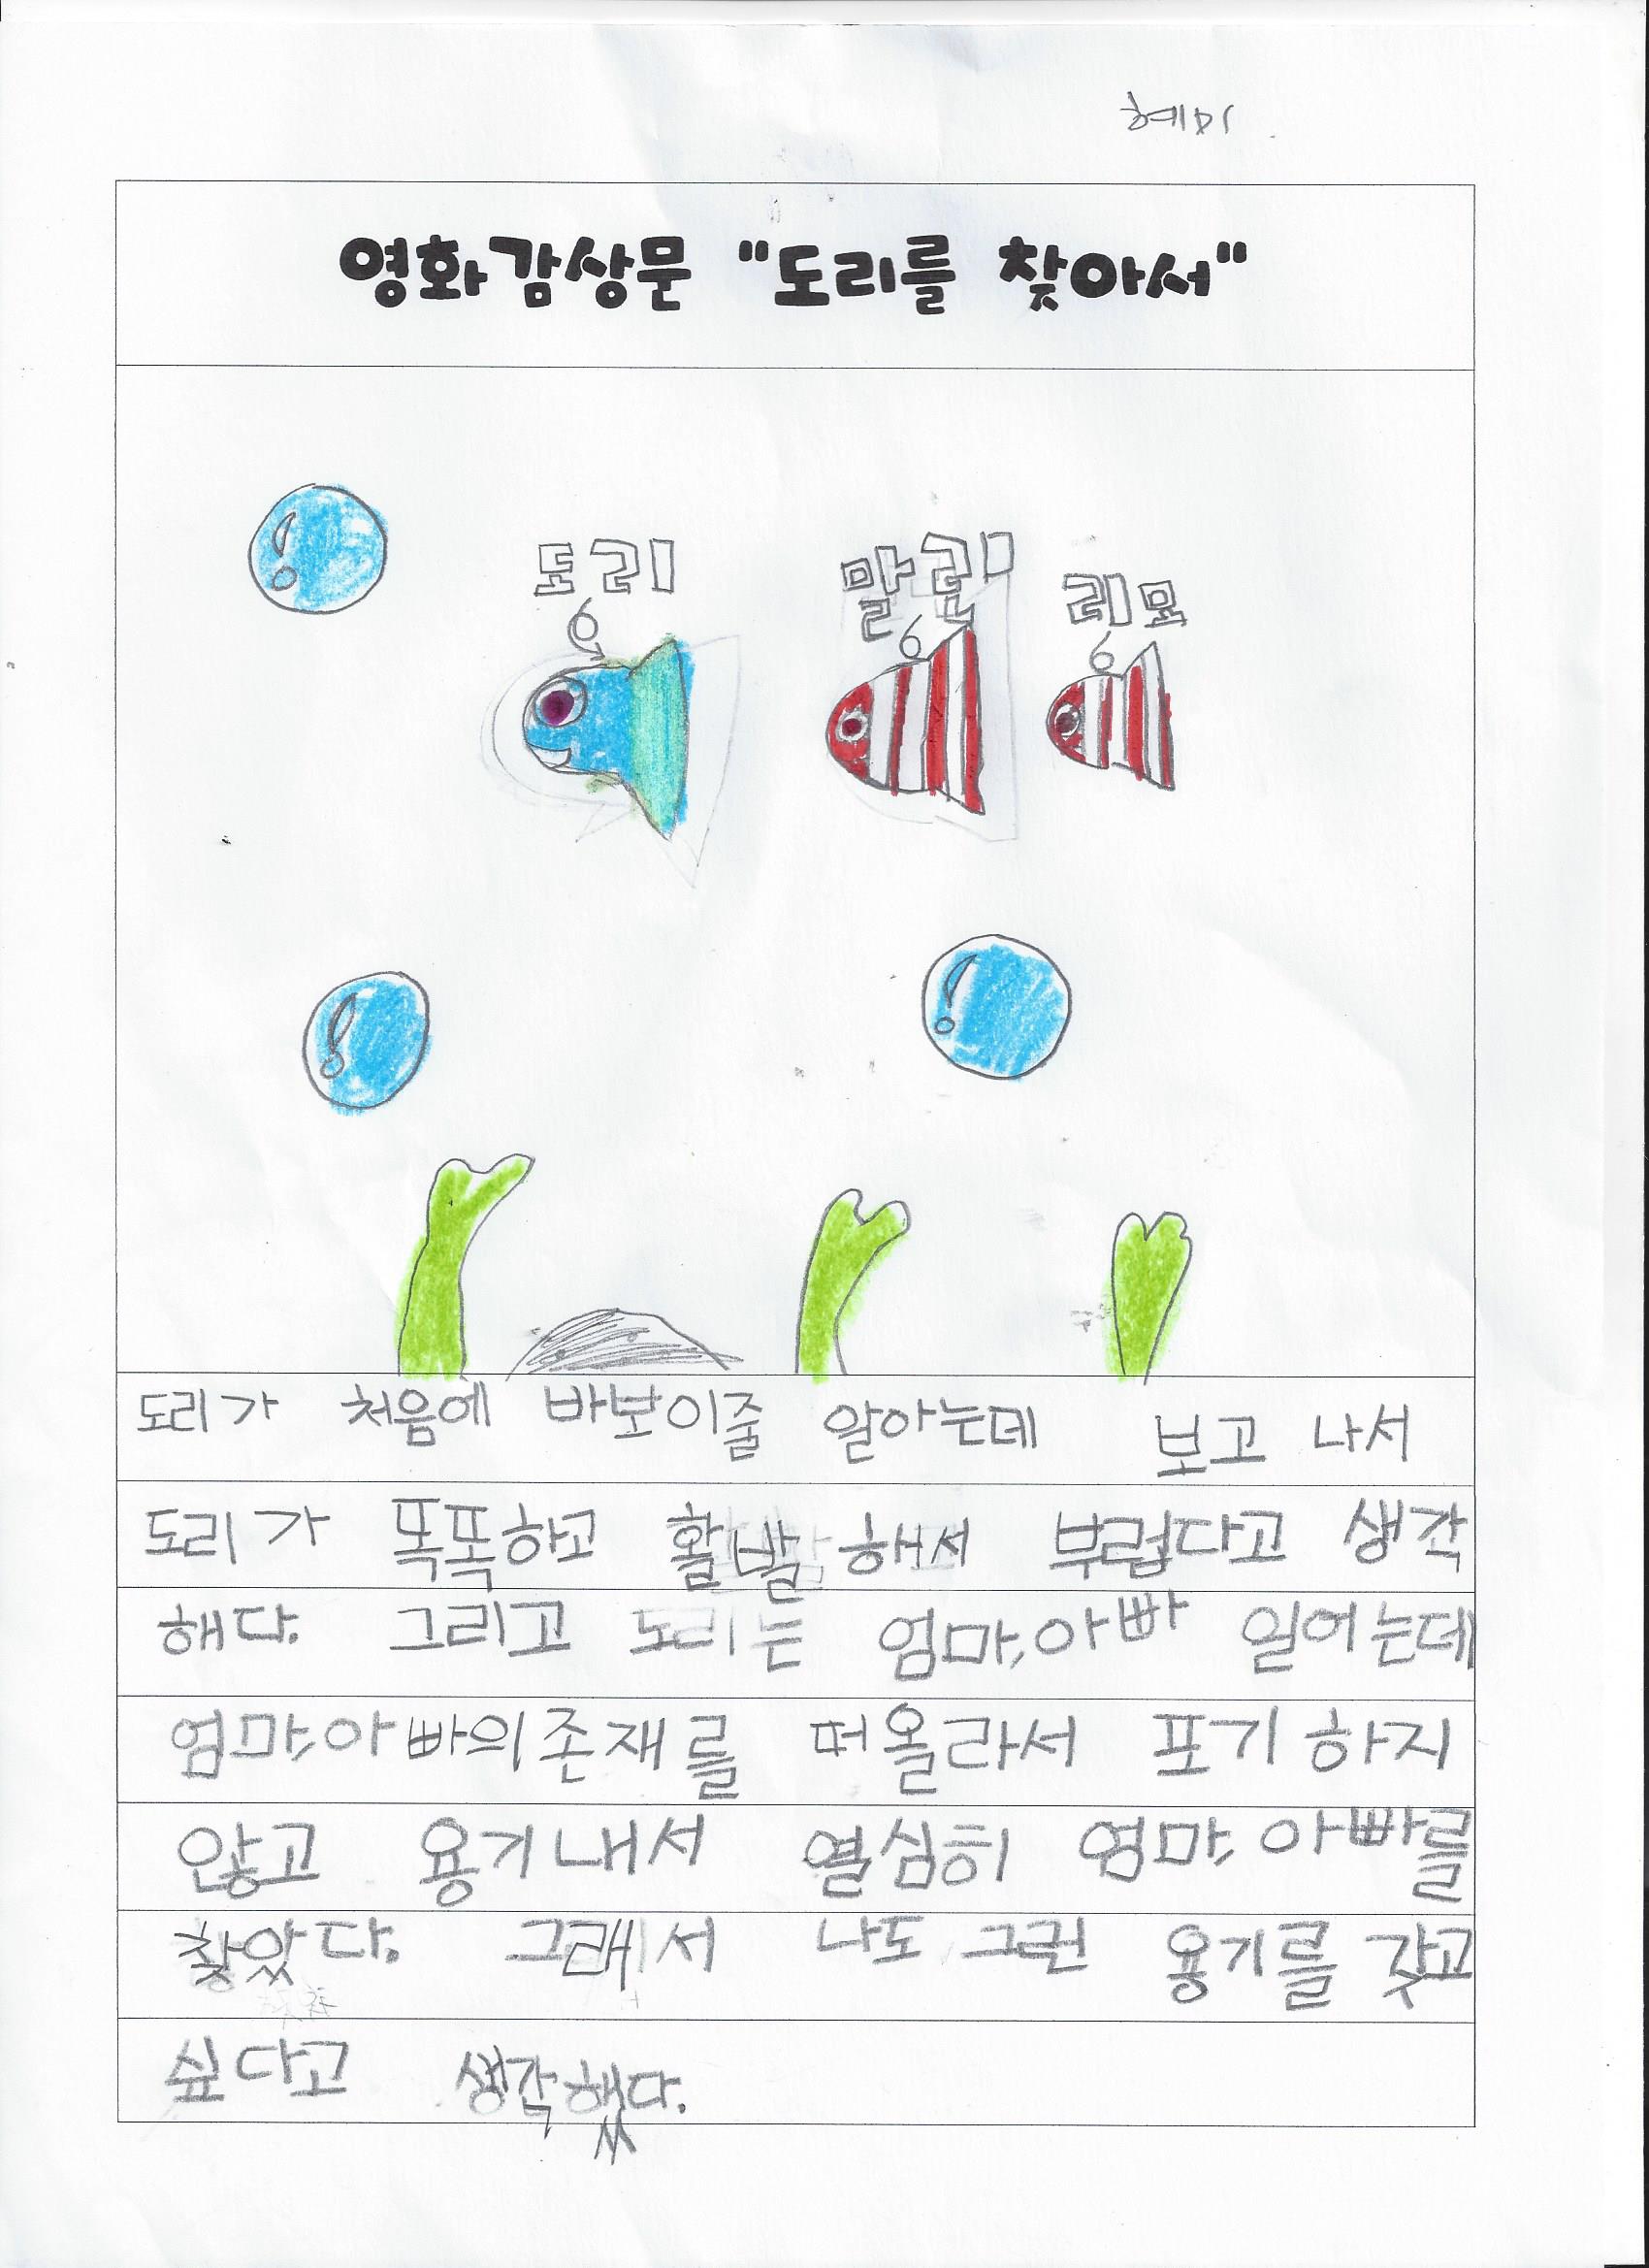 혜미
영화감상문 "도리를 찾아서"
도리
말린
리모
도리가 처음에 바보이줄 알아는데 보고 나서
도리가 똑똑하고 활발해서 부럽다고 생각
해다. 그리고 도리는 엄마,아빠 잃어는데
엄마,아빠의존재를 떠올라서 포기하지
않고 용기내서 열심히 엄마,아빠를
찾았다. 그래서 나도 그런 용기를 갖고
싶다고 생각했다.